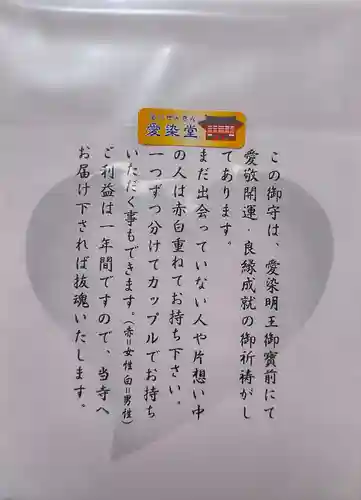 しょうまんさん
愛染堂
この御守は、愛染明王御寳前にて
愛敬開運・良縁成就の御祈祷がし
てあります。
まだ出会っていない人や片想い中
の人は赤白重ねてお持ち下さい。
一つずつ分けてカップルでお持ち
いただく事もできます。(赤=女性 白=男性)
ご利益は一年間ですので、当寺へ
お届け下されば抜魂いたします。